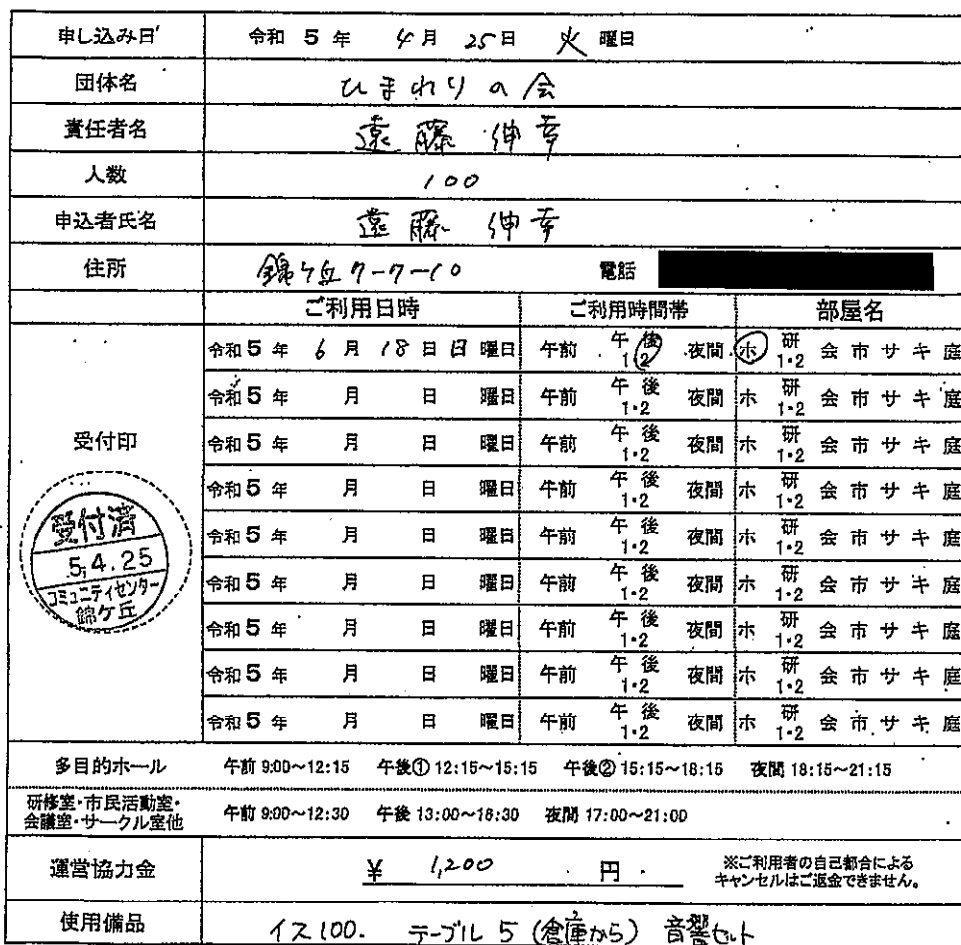 申し込み日 令和 5 年 4月 25日 火 曜日
団体名 ひまわりの会
責任者名 遠藤 伸幸
人数 100
申込者氏名 遠藤 伸幸
住所 錦ケ丘7-7-10 電話
ご利用日時 ご利用時間帯 部屋名
受付印
令和 5 年 6 月 18 日 日 曜日 午前 午後 1 2 夜間 ホ 研 1・2 会 市 サ キ 庭
令和 5 年 月 日 曜日 午前 午後 1・2 夜間 ホ 研 1・2 会 市 サ キ 庭
令和 5 年 月 日 曜日 午前 午後 1・2 夜間 ホ 研 1・2 会 市 サ キ 庭
令和 5 年 月 日 曜日 午前 午後 1・2 夜間 ホ 研 1・2 会 市 サ キ 庭
令和 5 年 月 日 曜日 午前 午後 1・2 夜間 ホ 研 1・2 会 市 サ キ 庭
令和 5 年 月 日 曜日 午前 午後 1・2 夜間 ホ 研 1・2 会 市 サ キ 庭
令和 5 年 月 日 曜日 午前 午後 1・2 夜間 ホ 研 1・2 会 市 サ キ 庭
令和 5 年 月 日 曜日 午前 午後 1・2 夜間 ホ 研 1・2 会 市 サ キ 庭
令和 5 年 月 日 曜日 午前 午後 1・2 夜間 ホ 研 1・2 会 市 サ キ 庭
受付済
5.4.25
コミュニティセンター
錦ケ丘
多目的ホール 午前 9:00~12:15 午後① 12:15~15:15 午後② 15:15~18:15 夜間 18:15~21:15
研修室・市民活動室・
会議室・サークル室他 午前 9:00~12:30 午後 13:00~16:30 夜間 17:00~21:00
運営協力金 ¥ 1,200 円 ※ご利用者の自己都合による
キャンセルはご返金できません。
使用備品 イス100. テーブル 5 (倉庫から) 音響セット